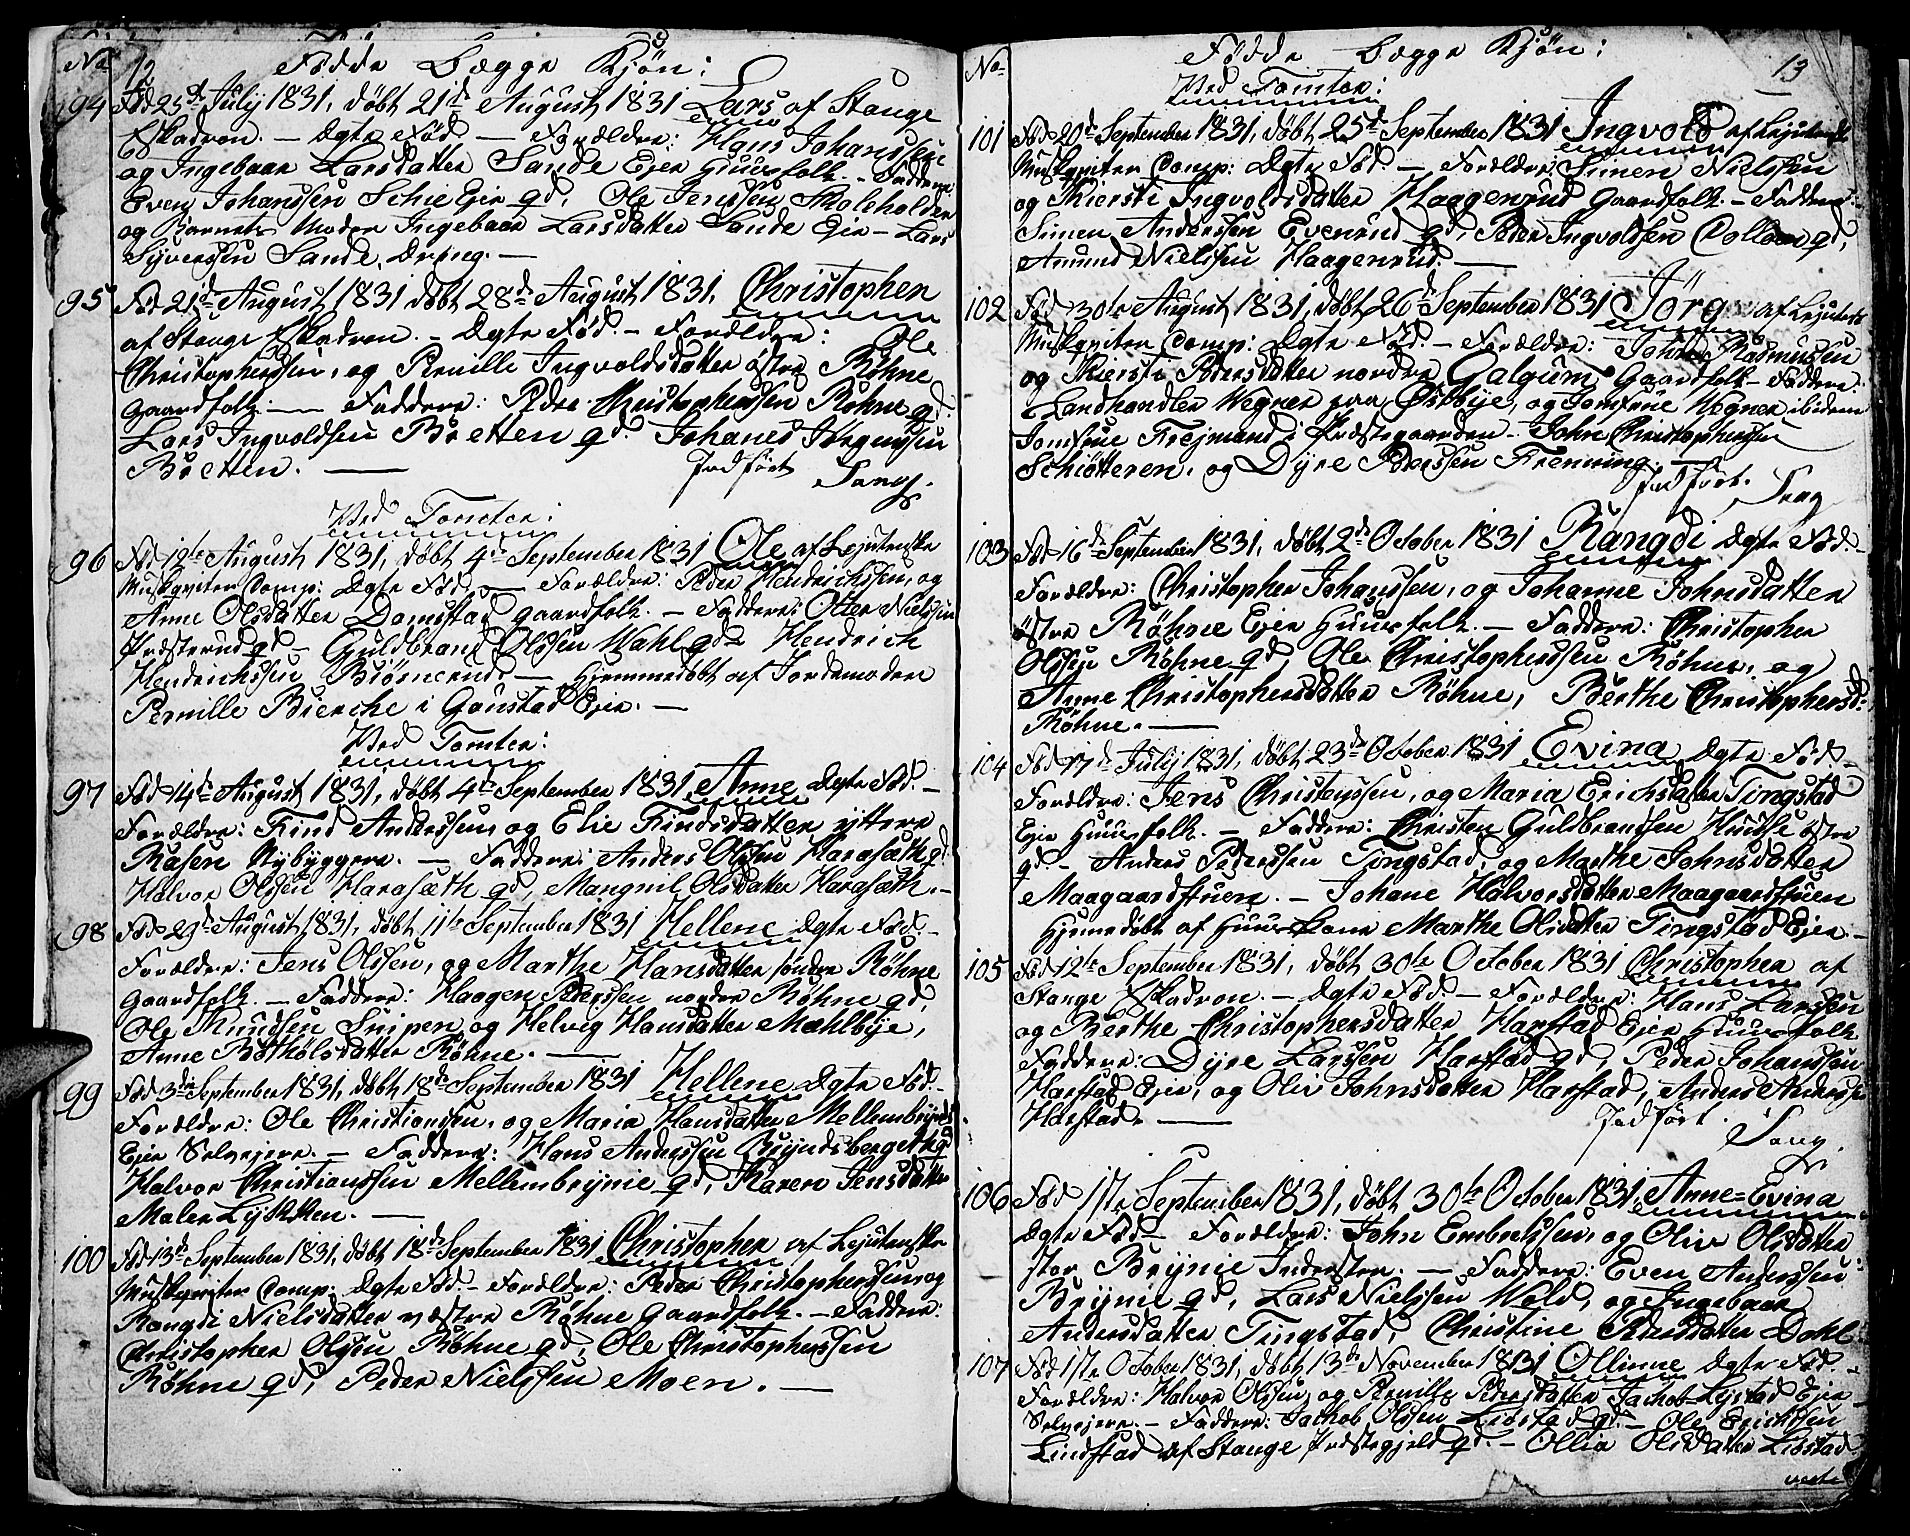 12
No Fødde Begge Kjøn:
94 Fød 25de Julij 1831, døbt 21de August 1831 Lars af Stange
Eskadron. – Ægte Fød – Forældre: Hans Johanssen
og Ingebaar Larsdatter Sande Ejer Huusfolk. – Faddere
Even Johanssen Schie Ejer gd, Ole Jenssen Skoleholder
og Barnets Moder Ingebaar Larsdatter Sande Ejer – Lars
Syverssen Sande, Dreng. –
95 Fød 21de August 1831 døbt 28de August 1831, Christopher
af Stange Eskadron. – Ægte Fød. – Forældre: Ole
Christopherssen, og Pernille Ingvoldsdatter østre Røhne
Gaardfolk. – Faddere: Peder Christopherssen Røhne gd:
Lars Ingvoldsen Bretten gd. Johanes Jørgenssen
Bretten. – Indført
Ved Tomter:
96 Fød 19te August 1831, døbt 4de September 1831 Ole af Lejutenske
Musqveter Comp: Ægte Fød, – Forældre: Peder Hendrichssen, og
Anne Olsdatter Domstad gaardfolk. – Faddere: Otter Nielssen
Præsterud gd – Guldbrand Olssen Wahl gd – Hendrich
Hendrichssen Biørnerud. – Hjemmedøbt af Jordemoder
Pernille Bierche i Gaustad Ejer. –
Ved Tomter:
97 Fød 14de August 1831, døbt 4de September 1831 Anne Ægte Fød. –
Forældre: Find Anderssen og Elie Findsdatter yttere
Rasen Nybyggere. – Faddere: Anders Olssen Harasæth gd
Halvor Olssen Harasæth gd, Mangnil Olsdatter Harasæth. –
98 Fød 29de August 1831, døbt 11te September 1831 Hellene Ægte Fød. –
Forældre: Jens Olssen, og Marthe Hansdatter søndre Røhne
Gaardfolk. – Faddere: Haagen Pederssen nordre Røhne gd,
Ole Knudsen Snipen og Helvig Hansdatter Mæhlbye,
Anne Røtholsdatter Røhne. –
99 Fød 3die September 1831, døbt 18de September 1831 Hellene Ægte Fød. –
Forældre: Ole Christianssen, og Maria Hansdatter Mellembrynie
Ejer Selvejere. – Faddere: Hans Anderssen Bryndsberget gd
Halvor Christianssen Mellembrynie gd, Karen Jensdatter
Maler Lykken. –
100 Fød 13de September 1831, døbt 18de September 1831 Christopher af Lejutenske
Musqveter Comp: Ægte Fød. – Forældre: Peder Christopherssen og
Rangdi Nielsdatter væstre Røhne Gaardfolk. – Faddere:
Christopher Olssen Røhne gd, Ole Christopherssen
Røhne gd, Peder Nielssen Moen. –
13
No Fødde Begge Kjøn:
Ved Tomter:
101 Fød 20de September 1831, døbt 25de September 1831 Ingvold af Lejutenske
Musqveter Comp: Ægte Fød. – Forældre: Simen Nielssen
og Kiersti Ingvoldsdatter Haagenrud Gaardfolk. – Faddere:
Simen Anderssen Evenrud gd, Peder Ingvoldsen gd,
Amund Nielssen Haagenrud. –
102 Fød 30te August 1831, døbt 26de September 1831 Jørg af Lejutenske
Musqveter Comp: Ægte Fød. – Forældre: Johan Rasmussen
og Kiersti Pedersdatter nordre Galgum Gaardfolk – Faddere:
Landhandler Wegner paa Østbije, og Jomfrue Wegner ibidem
Jomfrue Frejmand i Præstegaarden – John Christopherssen
Schiøtteren, og Dyre Pederssen Frenning. –
Indført.
103 Fød 16de September 1831, døbt 2de October 1831 Rangdi Ægte Fød. –
Forældre: Christopher Johanssen, og Johanne Johnsdatter
østre Røhne Ejer Huusfolk. – Faddere: Christopher
Olssen Røhne gd, Ole Christopherssen Røhne, og
Anne Christophersdatter Røhne, Berthe Christophersd:
Røhne. –
104 Fød 17de Julij 1831, døbt 23de October 1831 Evina Ægte Fød. –
Forældre: Jens Christenssen, og Maria Erichsdatter Tingstad
Ejer Huusfolk. – Faddere: Christen Guldbrandssen Hundse østre
gd. – Anders Pederssen Tingstad, og Marthe Johnsdatter
Maagaardstuen. – Johane Halvorsdatter Maagaardstuen
Hjemedøbt af Huus Kone Marthe Olsdatter Tingstad Ejer. –
105 Fød 12te September 1831, døbt 30te October 1831 Christopher af
Stange Eskadron. – Ægte Fød. – Forældre: Hans Larssen
og Berthe Christophersdatter Harstad Ejer Huusfolk
Faddere: Dyre Larssen Harstad gd, Peder Johanssen
Harstad Ejer, og Oliv Johnsdatter Harstad, Anders Anderssen
Harstad. – Indført.
106 Fød 17de September 1831, døbt 30te October 1831 Anne=Evina
Ægte Fød – Forældre: John Embretssen, og Oliv Olsdatter
stor Brynie Inderster. – Faddere: Even Anderssen
Brynie gd, Lars Nielssen Wold, og Ingebaar
Andersdatter Tingstad, Christine Pedersdatter Dahl
107 Fød 17de October 1831, døbt 13de November 1831 Ollinne Ægte Fød. –
Forældre: Halvor Olssen, og Pernille Pedersdatter Jachob-Lijstad Ejer
Selvejere. – Faddere: Jachob Olssen Lidstad gd. – Ole Erichssen
Lindstad af Stange Præstegjeld gd. – Ollia Olsdatter Lidstad